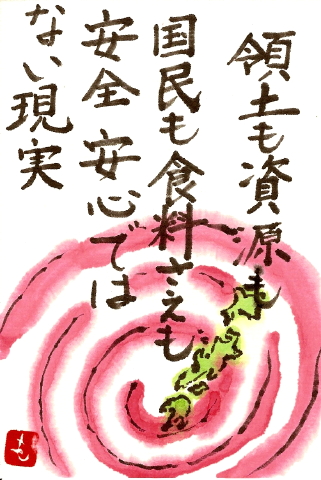 領土も資源も
国民も食料さえも
安全安心では
ない現実
もも